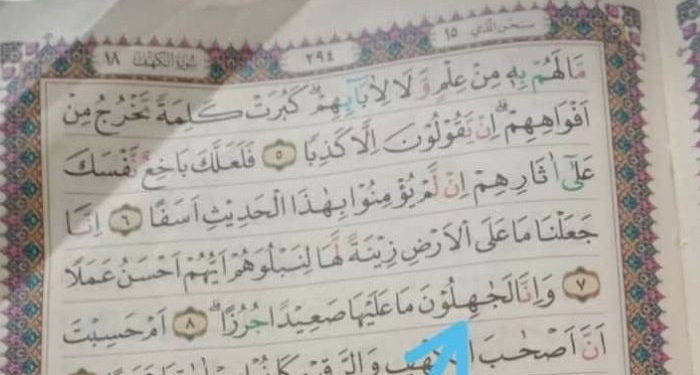 سبحن الذي ١٥
٢٩٤
سورة الكهف ١٨
مَا لَهُمْ بِهٖ مِنْ عِلْمٍ وَّلَا لِاٰبَاۤىِٕهِمْۗ كَبُرَتْ كَلِمَةً تَخْرُجُ مِنْ
اَفْوَاهِهِمْۗ اِنْ يَّقُوْلُوْنَ اِلَّا كَذِبًا ٥ فَلَعَلَّكَ بَاخِعٌ نَّفْسَكَ
عَلٰٓى اٰثَارِهِمْ اِنْ لَّمْ يُؤْمِنُوْا بِهٰذَا الْحَدِيْثِ اَسَفًا ٦ اِنَّا
جَعَلْنَا مَا عَلَى الْاَرْضِ زِيْنَةً لَّهَا لِنَبْلُوَهُمْ اَيُّهُمْ اَحْسَنُ عَمَلًا
٧ وَاِنَّا لَجٰهِلُوْنَ مَا عَلَيْهَا صَعِيْدًا جُرُزًاۗ ٨ اَمْ حَسِبْتَ
اَنَّ اَصْحٰبَ